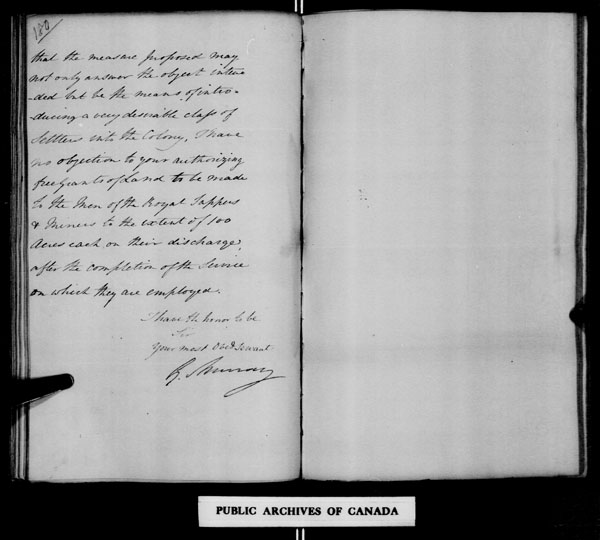 180
that the measure proposed may
not only answer the object inten-
-ded but be the means of intro-
-ducing a very desirable class of
Settlers into the Colony, I have
no objection to your authorizing
free Grants of Land to be made
to the Men of the Royal Sappers
& Miners to the extent of 100
Acres each on their discharge,
after the completion of the Service
on which they are employed.
I have the honor to be
Sir
Your most Obedt Servant
G. Murray
PUBLIC ARCHIVES OF CANADA